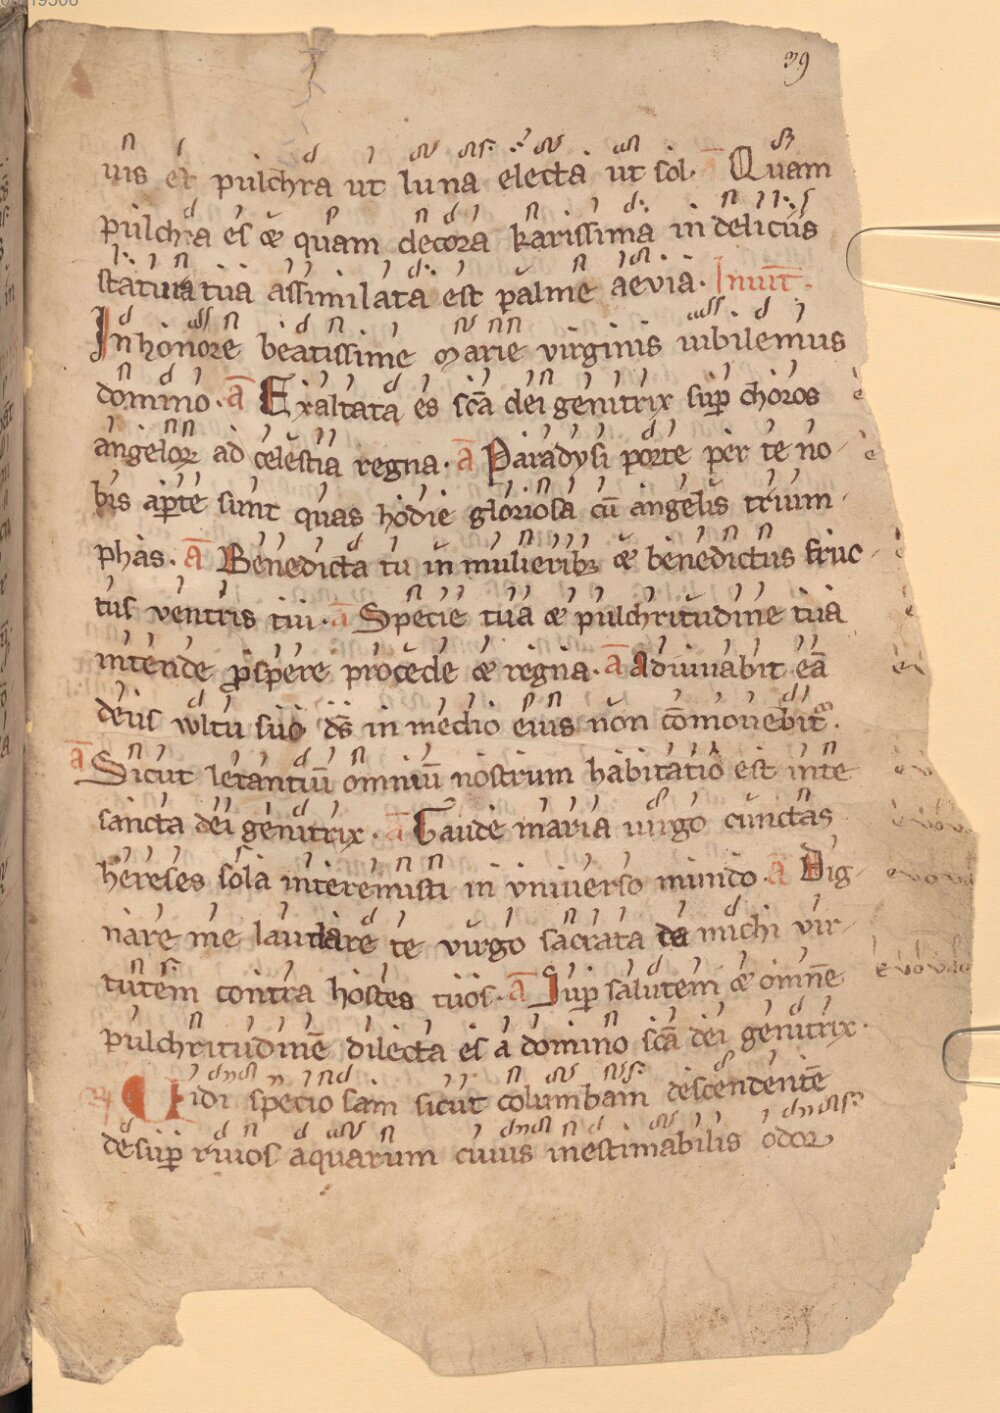 39
uis et pulchra ut luna electa ut sol. a̅ Quam
pulchra es & quam decora karissima in deliciis
statura tua assimilata est palme aevia. Inuit̅.
In honore beatissime marie virginis iubilemus
domino. a̅ Exaltata es sc̅a dei genitrix sup̅ choros
angeloꝝ ad celestia regna. a̅ Paradysi porte per te no-
bis ap̅te sunt quas hodie gloriosa cu̅ angelis trium-
phas. a̅ Benedicta tu in mulierib; & benedictus fruc-
tus ventris tui. a̅ Specie tua & pulchritudine tua
intende p̅spere procede & regna. a̅ Adiuuabit ea̅
deus wltu suo ds̅ in medio eius non co̅mouebit̅.
a̅ Sicut letantiu̅ omniu̅ nostrum habitatio est in te
sancta dei genitrix. a̅ Gaude maria uirgo cunctas
hereses sola interemisti in vniuerso mundo. a̅ Dig-
nare me laudare te virgo sacrata da michi vir-
tutem contra hostes tuos. a̅ Sup̅ salutem & omne̅
pulchritudine̅ dilecta es a domino sc̅a dei genitrix.
Vidi speciosam sicut columbam descendente̅
desup̅ riuos aquarum cuius inestimabilis odor